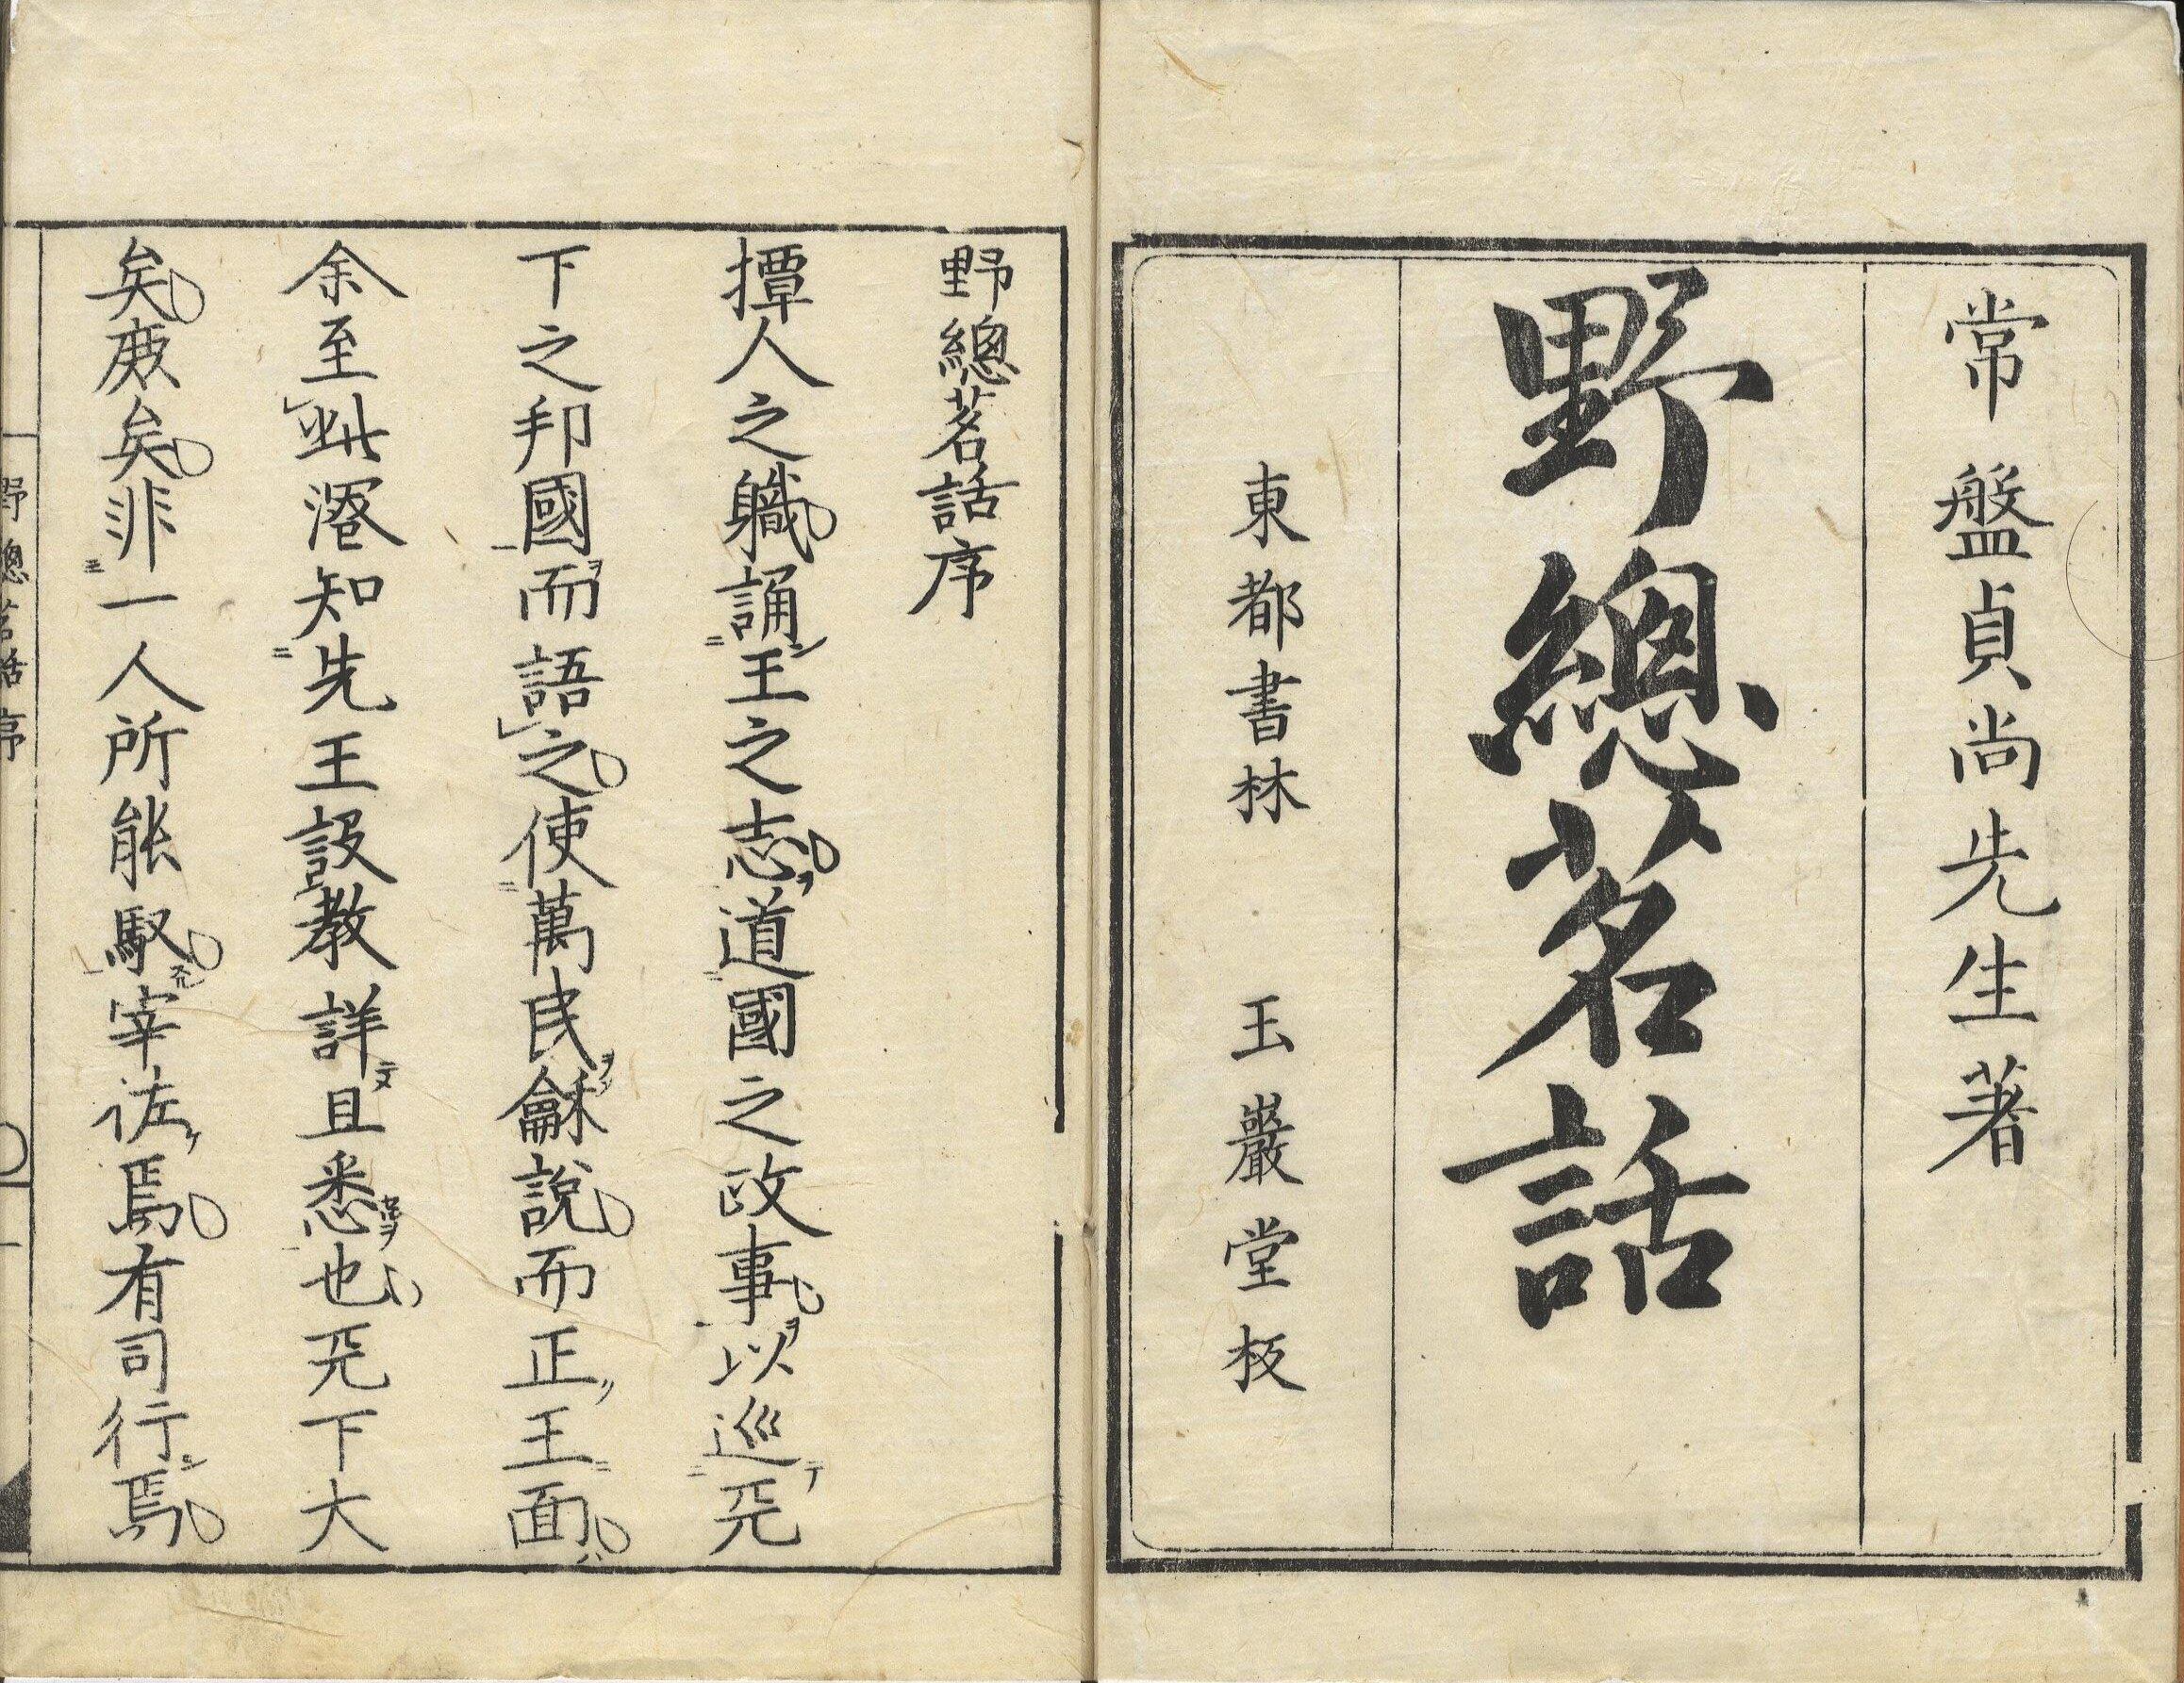 常盤貞尚先生著
野總茗話
東都書林 玉巖堂板
野總茗話序
撢人之職誦王之志道國之政事以巡兲
下之邦國而語之使萬民龢說而正王面
余至此深知先王設教詳且悉也兲下大
矣庶矣非一人所能馭宰佐焉有司行焉
野總茗話序